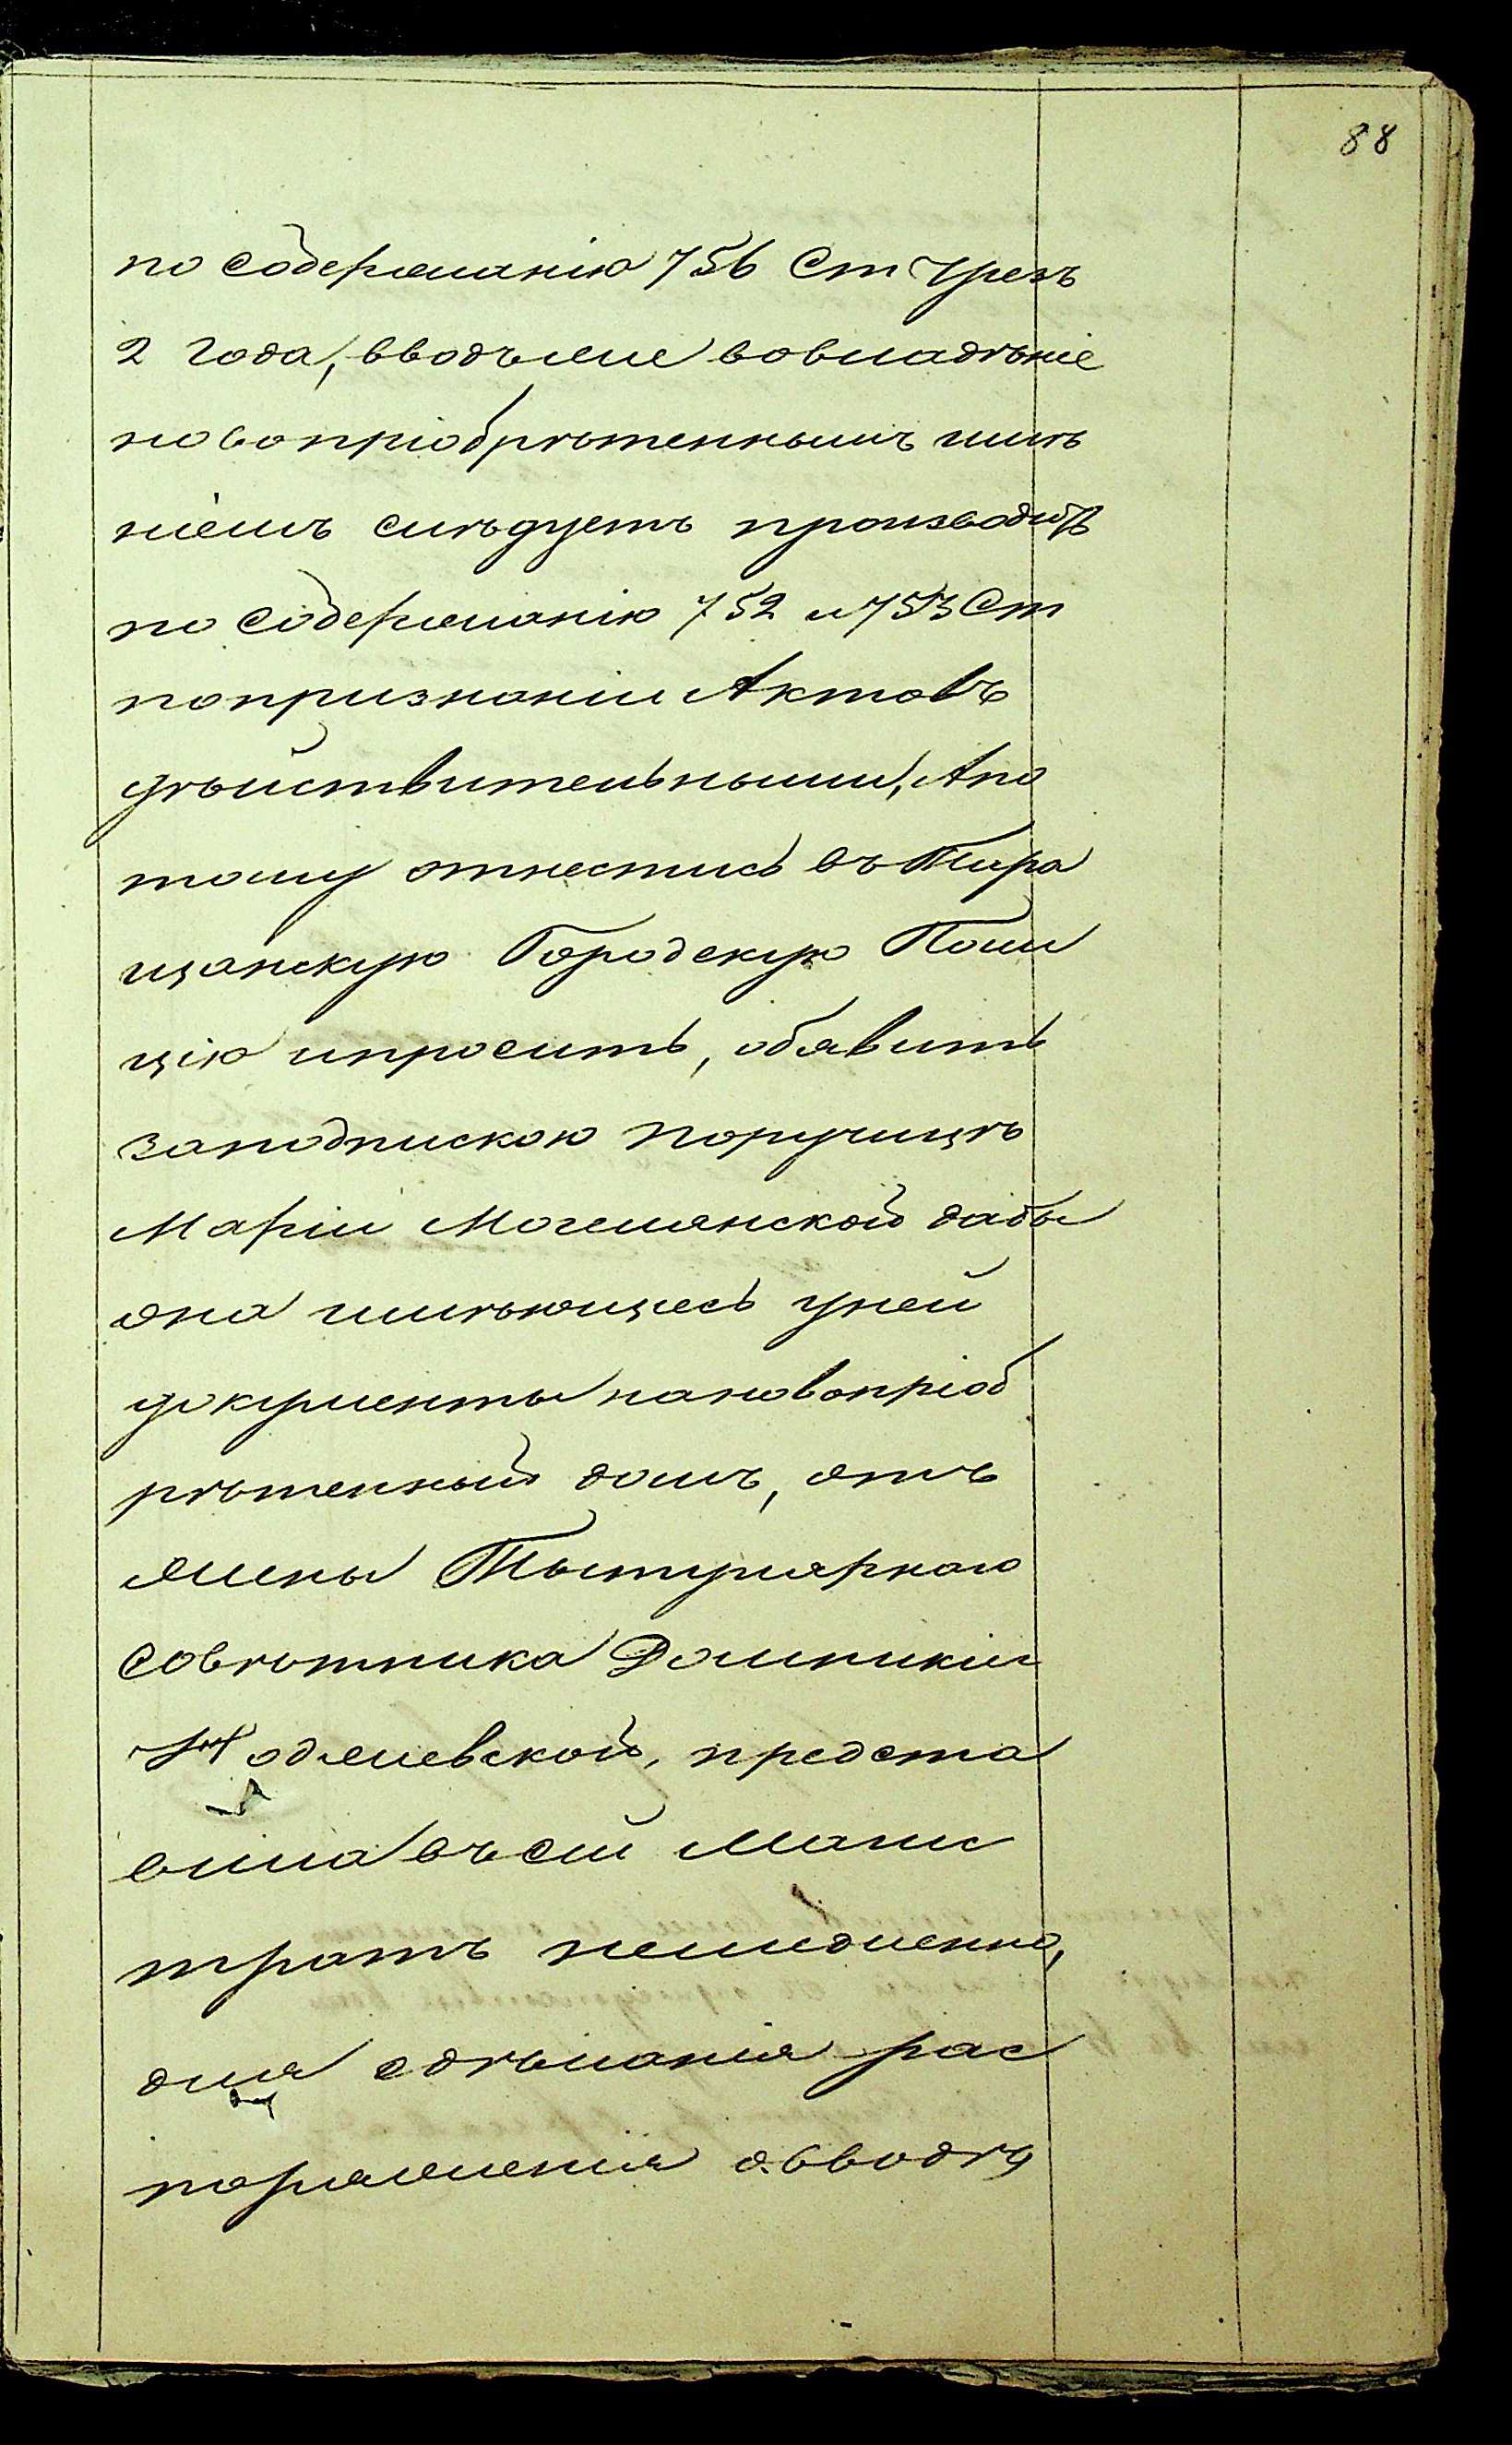 88
по содержанію 756 Ст чрезъ
2 года, вводъ же вовладѣніе
новопріобрѣтеннымъ имѣ
ніемъ слѣдуетъ производить
по содержанію 752 и 753 Ст
попризнаніи Актовъ
дѣйствительными, Апо
тому отнестись въ Тира
щанскую Городскую Поли
цію ипросить, обявить
заподпискою поручицѣ
Маріи Могелянской дабы
она имѣющіесь уней
документы нановопріоб
рѣтенный домъ, отъ
жены Тытулярнаго
совѣтника Доминикіи
Модлевской, предста
вила въсей Магис
тратъ немедленно,
для здѣланія рас
поряженія овводѣ